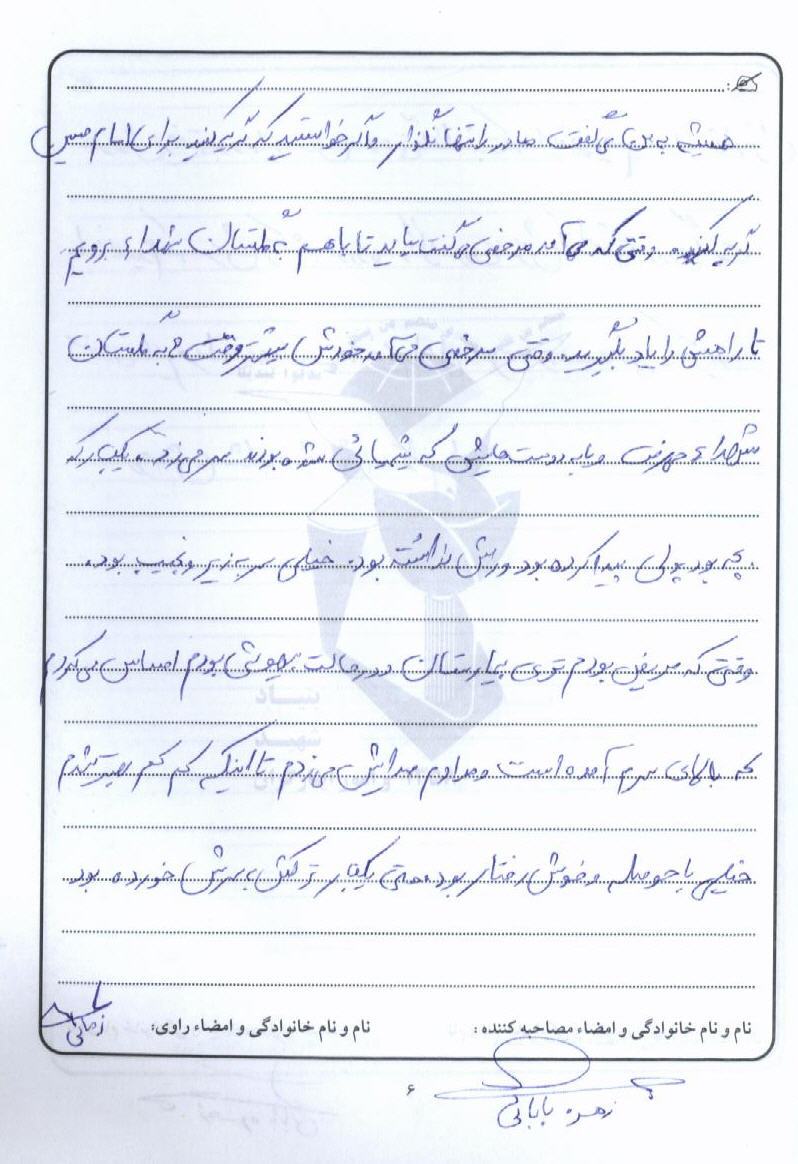 همیشه به من می گفت مادر را تنها نگذار واگر خواستید که گریه کنید برای امام حسین
گریه کنید. وقتی که می آمد مرخصی می گفت بیاید تا باهم به گلستان شهداء برویم
تا راهش را یاد بگیرید. وقتی مرخصی می آمد خودش بیشتر وقت ها به گلستان
شهداء می رفت و یا به دوست هایش که شیمیائی شده بودند سر می زد. یکبار که
بچه بود پولی پیدا کرده بود و رش نداشته بود. خیلی سر به زیر و نجیب بود.
وقتی که مریض بودم توی بیمارستان و در حالت بیهوشی بودم احساس می کردم
که بالای سرم آمده است و مدام صدایش می زدم تا اینکه کم کم بهتر شدم
خیلی با حوصله و خوش رفتار بود. حتی یکبار ترکش به سرش خورده بود
نام و نام خانوادگی و امضاء مصاحبه کننده :
نام و نام خانوادگی و امضاء راوی:
زمانی
زهره بابائی
۶
بنیاد
شهید